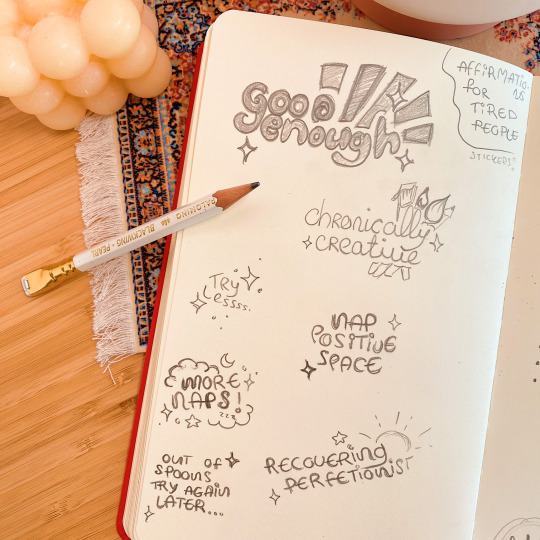 AFFIRMATIONS
FOR
TIRED
PEOPLE
STICKERS?
good
enough
chronically
creative
TRY
Lessss.
NAP
POSITIVE
SPACE
MORE
NAPS!
RECOVERING
PERFETIONIST
OUT OF
SPOONS
TRY AGAIN
LATER...
PALOMINO BLACKWING PEARL